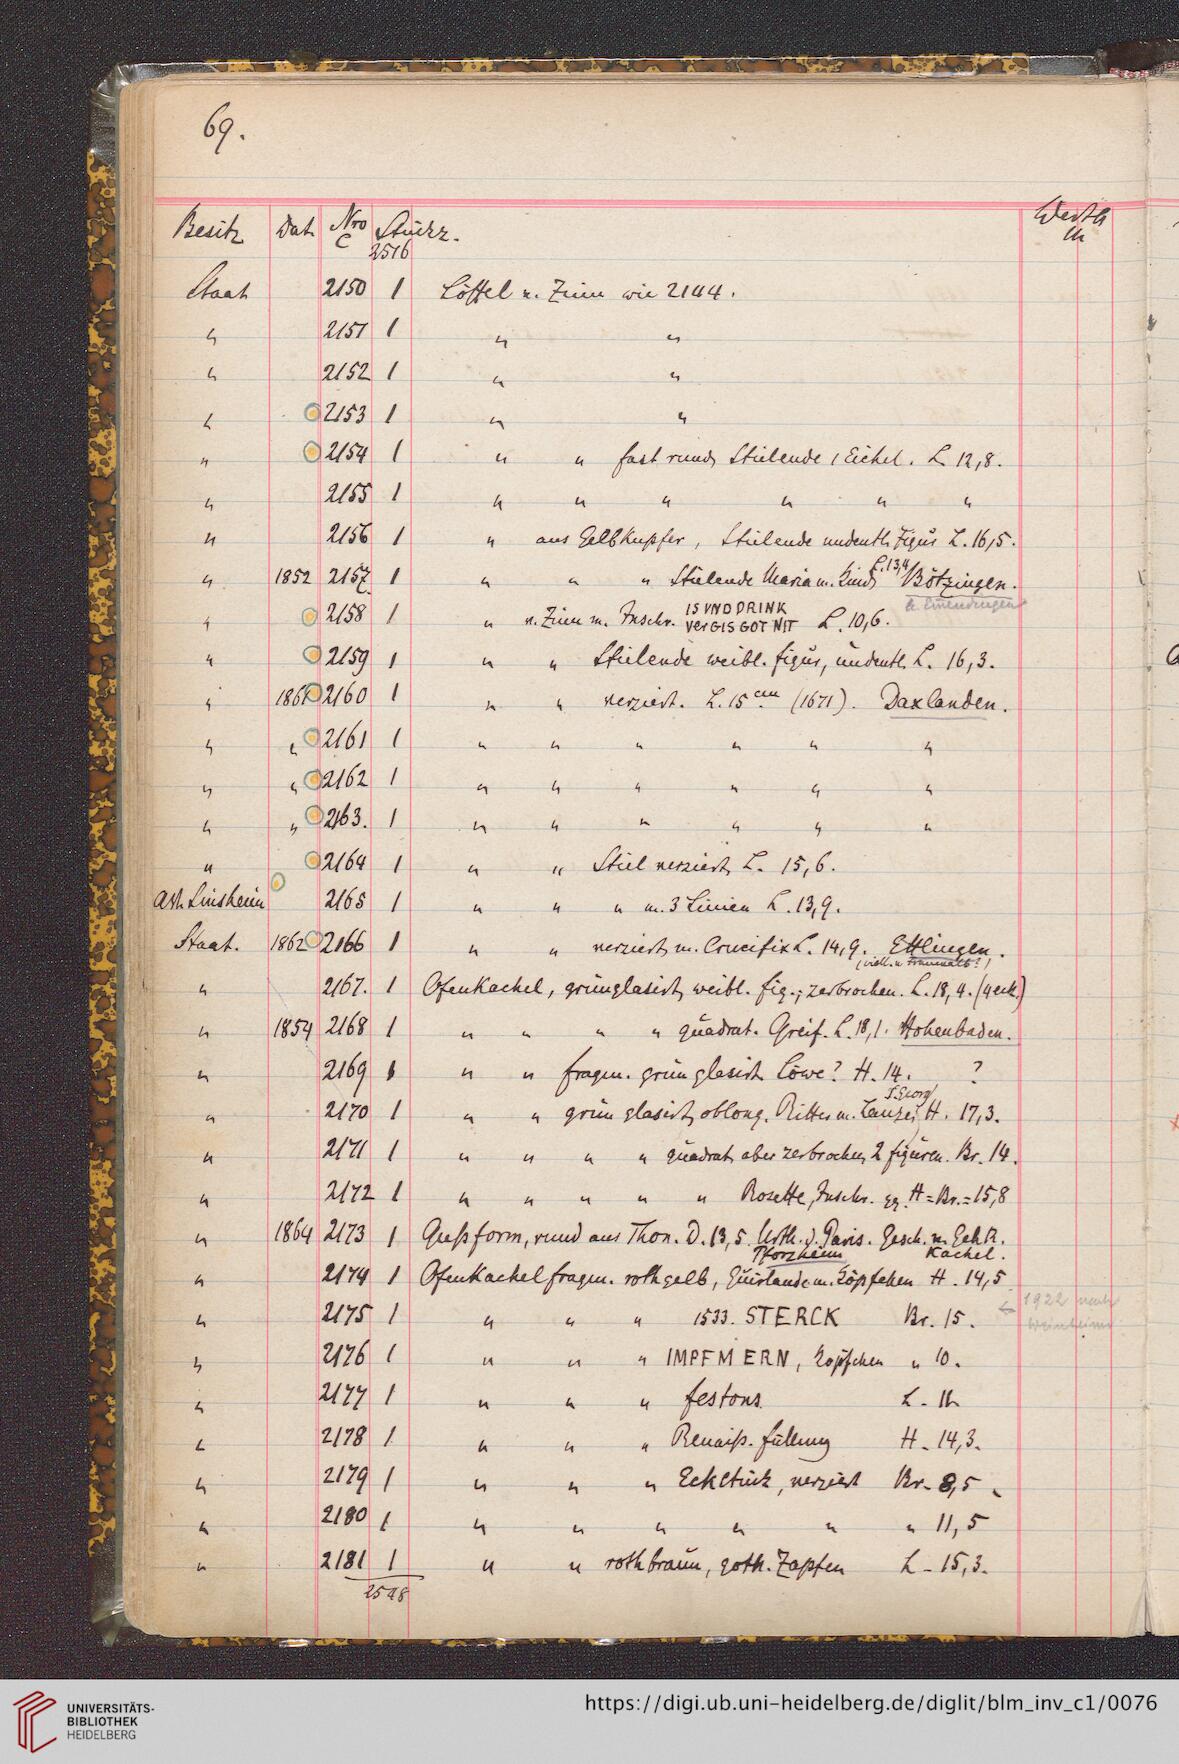 69.
Besitz Dat. Nro C Stückz. Werth M
2516
Staat 2150 1 Löffel v. Zinn wie 2144.
" 2151 1 " "
" 2152 1 " "
" 2153 1 " "
" 2154 1 " " fast rund, Stielende, Eichel. L 12,8.
" 2155 1 " " " " " "
" 2156 1 " aus Gelbkupfer, Stielende undeutl. Figur L. 16,5.
" 1852 2157 1 " " " Stielende Maria m. Kind, L. 13,4 Bötzingen.
b. Emendingen
" 2158 1 " v. Zinn m. Inschr. IS VND DRINK VERGIS GOT NIT L. 10,6.
" 2159 1 " " Stielende weibl. Figur, undeutl. L. 16,3.
" 2160 1 " " verziert. L. 15 cm (1671). Daxlanden.
" " 2161 1 " " " " " "
" " 2162 1 " " " " " "
" " 2163. 1 " " " " " "
" 2164 1 " " Stiel verziert, L. 15,6.
Sinsheim 2165 1 " " " m. 3 Linien L. 13,9.
Staat. 1862 2166 1 " " verziert m. Crucifix L. 14,9. Ettlingen.
" 2167. 1 Ofenkachel, grünglasirt, weibl. Fig.; zerbrochen. L. 18,4. (4eck.)
" 1854 2168 1 " " " " quadrat. Greif. L. 18,1. Hohenbaden.
" 2169 1 " " fragm. grün glasirt Löwe? H. 14. ?
" 2170 1 " " grün glasirt, oblong. Ritter m. Lanze, S. Georg H. 17,3.
" 2171 1 " " " " quadrat, aber zerbrochen, 2 Figuren. Br. 14.
" 2172 1 " " " " " Rosette, Inschr. H = Br. = 15,8
" 1864 2173 1 Gußform, rund aus Thon. D. 13,5. Urth. d. Paris. Gesch. v.
Pforzheim Kachel.
" 2174 1 Ofenkachelfragm. rothgelb, Guirlande m. Köpfchen H. 14,5
" 2175 1 " " " 1533. STERCK Br. 15. ← 1922 nach Weinheim
" 2176 1 " " " IMPFMERN, Köpfchen " 10.
" 2177 1 " " " festons. L. 11
" 2178 1 " " " Renaiss. Füllung H. 14,3.
" 2179 1 " " " Eckstück, verziert Br. 8,5
" 2180 1 " " " " " " 11,5
" 2181 1 " " rothbraun, goth. Zapfen L. 15,3.
2548
UNIVERSITÄTS-
BIBLIOTHEK
HEIDELBERG
https://digi.ub.uni-heidelberg.de/diglit/blm_inv_c1/0076